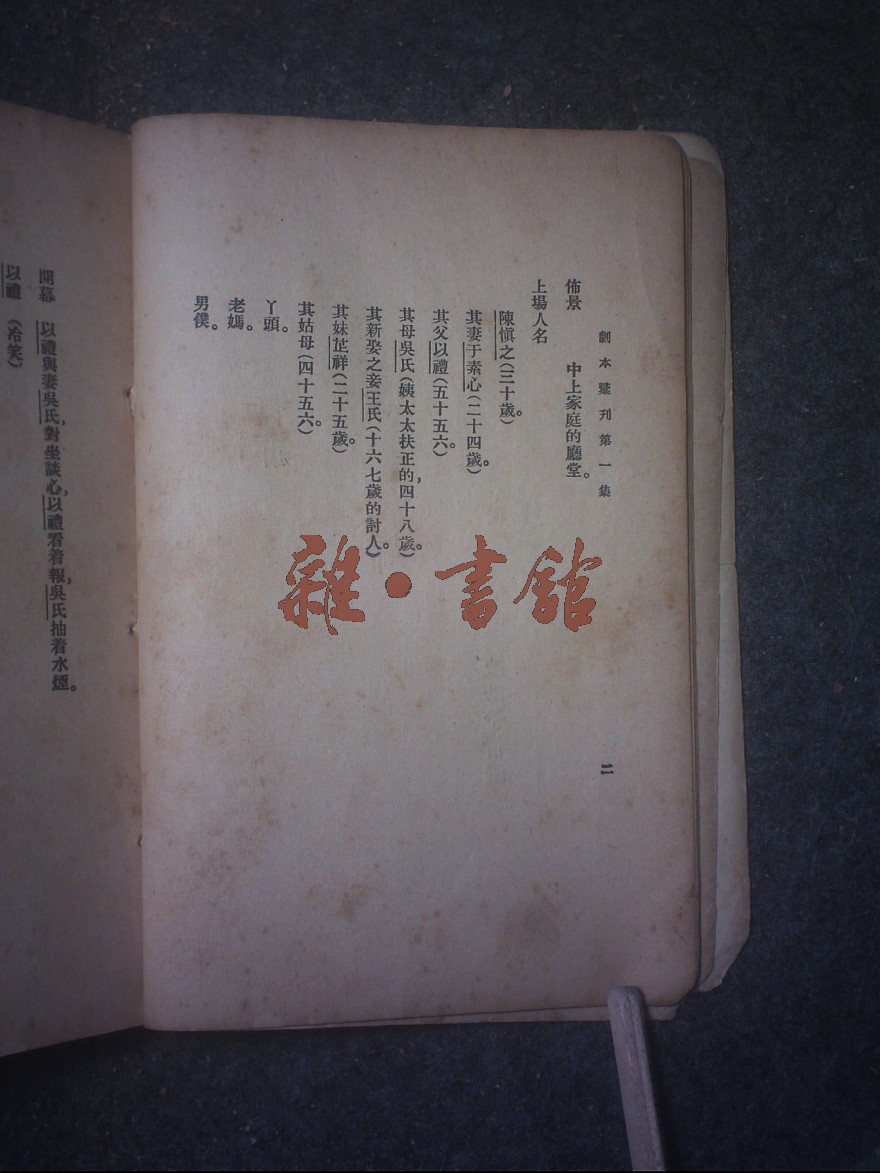 劇本彙刊第一集
二
佈景　中上家庭的廳堂。
上場人名
陳愼之(三十歲。)
其妻于素心(二十四歲。)
其父以禮(五十五六。)
其母吳氏(姨太太扶正的，四十八歲。)
其新娶之妾王氏(十六七歲的討人。)
其妹芷祥(二十五歲。)
其姑母(四十五六。)
丫頭。
老媽。
男僕。
開幕　以禮與妻吳氏，對坐談心，以禮看着報，吳氏抽着水煙。
以禮　(冷笑)
雜・書館